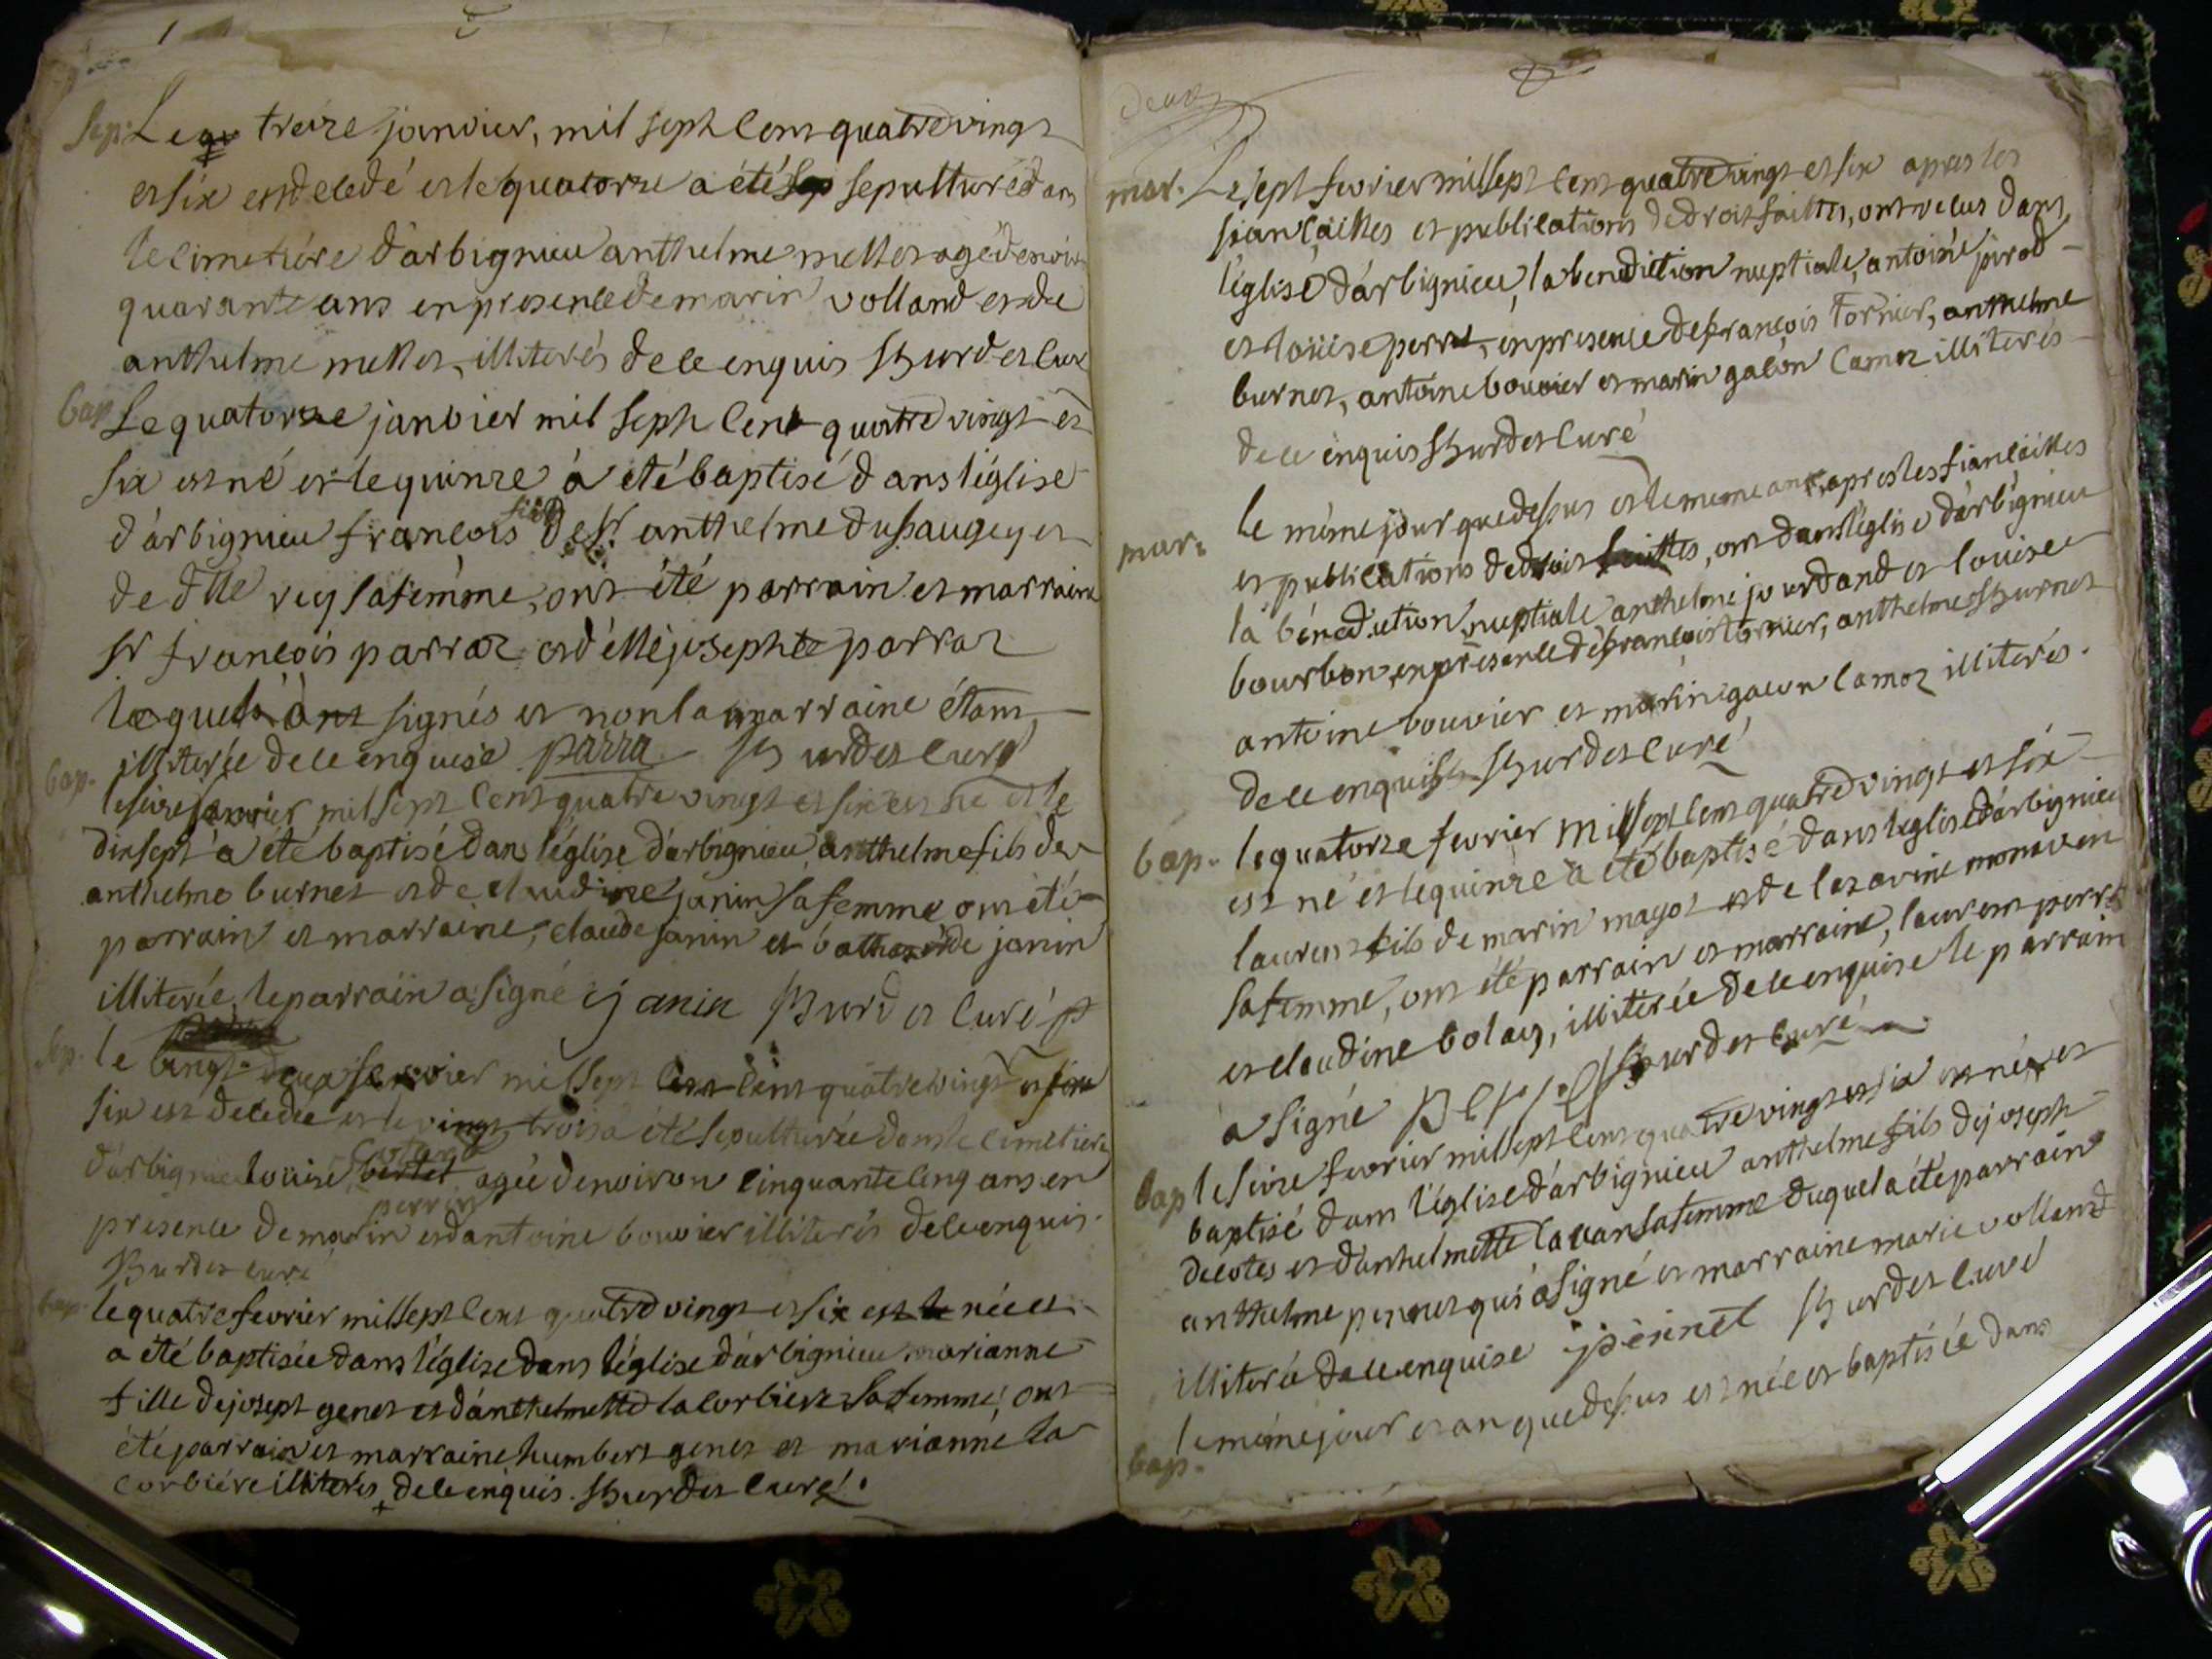 Sep. Le treize janvier, mil sept cent quatre vingt
et six est decedé et le quatorze a été sepulturé dans
le cimetiére d'arbignieu anthelme mettet agé d'environ
quarante ans en presence de marin volland et de
anthelme mettet, illiterés de ce enquis Burdet curé
bap. Le quatorze janvier mil sept cent quatre vingt et
six est né et le quinze a été baptisé dans l'église
d'arbignieu françois fils de Sr anthelme dussaugey et
de dlle rey sa femme, ont été parrain et marraine
Sr françois parraz et delle josephte parraz
signés et non la marraine étant
illiterée de ce enquise parra Burdet curé
bap. le seize janvier mil sept cent quatre vingt et six est né et le
dixsept a été baptisé dans l'église d'arbignieu anthelme fils de
anthelme burnet et de claudine janin sa femme ont été
parrain et marraine, claude janin et janin
illiterée, le parrain a signé cjanin Burdet curé
Sep. le vingt deux janvier mil sept cent quatre vingt et
six est decedée et le vingt trois a été sepulturée dans le cimetiere
d'arbignieu louise agée d'environ cinquante cinq ans en
perrin
presence de marin et d'antoine bouvier illiterés de ce enquis.
Burdet curé
bap. le quatre fevrier mil sept cent quatre vingt et six est née et
a été baptisée dans l'église dans l'église d'arbignieu marianne
fille de josept genet et d'anthelmette lacorbiere sa femme, ont
été parrain et marraine humbert genet et marianne la
corbiére illiterés de ce enquis. Burdet curé.
deux
mar. Le sept fevrier mil sept cent quatre vingt et six apres les
fiançailles et publications de droit faittes, ont recus dans
l'église d'arbignieu, la benediction nuptiale, antoine jirod
et louise perret, en presence de françois tornier, anthelme
burnet, antoine bouvier et marin galon camoz illiterés
de ce enquis Burdet curé
mar. le même jour que dessus et le meme an, apres les fiançailles
et publications de droit faittes, ont dans l'église d'arbignieu
la bénediction nuptiale anthelme jourdand et louise
bourbon, en présence de françois tornier, anthelme Burnet
antoine bouvier et marin galon camoz illiterés.
de ce enquis Burdet curé
bap. le quatorze fevrier mil sept cent quatre vingt et six
est né et le quinze a été baptisé dans l'eglise d'arbignieu
laurent fils de marin magot et de
sa femme, ont été parrain et marraine, laurent perret
et claudine bolay, illiterée de ce enquise le parrain
a signé perret Burdet curé
bap le seize fevrier mil sept cent quatre vingt et six est né et
baptisé dans l'église d'arbignieu anthelme fils de joseph
decotes et d'anthelmette lavan sa femme duquel a été parrain
anthelme pernet qui a signé et marraine marie volland
illiterée de ce enquise pernet Burdet curé
bap. le même jour et an que dessus est née et baptisée dans